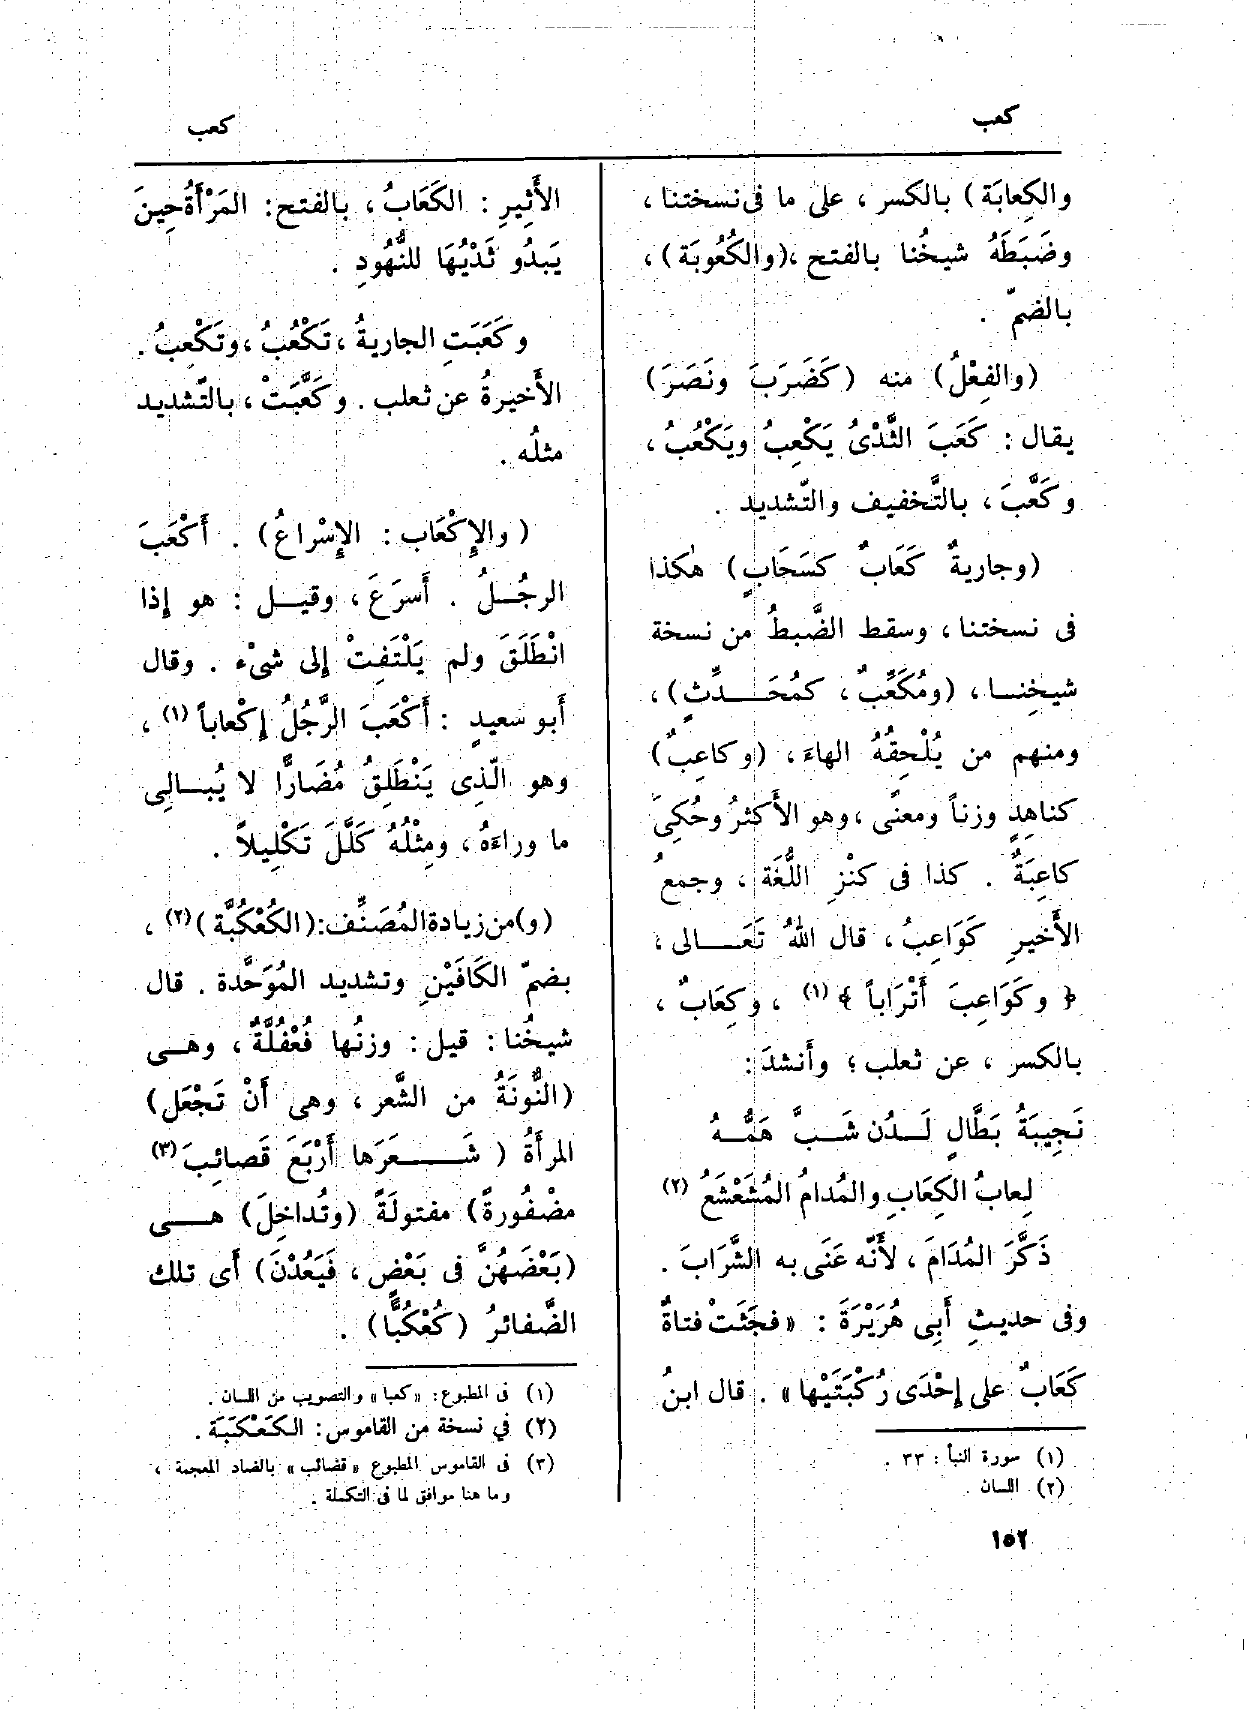 كعب
كعب
والكِعابَة) بالكسر ، على ما فى نسختنا ،
وضَبَطَهُ شيخُنا بالفتح ،(والكُعُوبَة) ،
بالضمّ .
(والفِعْلُ) منه (كَضَرَبَ ونَصَرَ)
يقال : كَعَبَ الثَّدْىُ يَكْعِبُ ويَكْعُبُ ،
وكَعَّبَ ، بالتَّخفيف والتّشديد .
(وجاريةٌ كَعَابٌ كسَحَابٍ) هٰكذا
فى نسختنا ، وسقط الضَّبطُ من نسخة
شيخِنـا ، (ومُكَعِّبٌ ، كمُحَــدِّثٍ) ،
ومنهم من يُلْحِقُهُ الهاءَ ، (وكاعِبٌ)
كناهِدٍ وزناً ومعنًى ،وهو الأَكثرُ وحُكِىَ
كاعِبَةٌ . كذا فى كنْزِ اللُّغَة ، وجمعُ
الأَخيرِ كَوَاعِبُ ، قال اللهُ تَعَــالى ،
﴿ وكَوَاعِبَ أَتْرَاباً ﴾ (١) ، وكِعَابٌ ،
بالكسر ، عن ثعلب ؛ وأَنشدَ :
نَجِيبَةُ بَطَّالٍ لَــدُن شَــبَّ هَمُّــهُ
لِعابُ الكِعَابِ والمُدامُ المُشَعْشَعُ (٢)
ذَكَّرَ المُدَامَ ، لأَنَّه عَنَى به الشَّرَابَ .
وفى حديثِ أَبِى هُرَيْرَةَ : « فجَثَتْ فتاةٌ
كَعَابٌ على إِحْدَى رُكْبَتَيْها » . قال ابنُ
(١) سورة النبأ : ٣٣ .
(٢) اللسان .
١٥٢
الأَثِيرِ : الكَعَابُ ، بالفتح : المَرْأَةُ حِينَ
يَبدُو ثَدْيُهَا للنُّهُودِ .
وكَعَبَتِ الجاريةُ ، تَكْعُبُ ، وتَكْعِبُ .
الأَخيرةُ عن ثعلب . وكَعَّبَتْ ، بالتّشديد
مثلُه .
(والإِكْعَاب : الإِسْراعُ) . أَكْعَبَ
الرجُــلُ . أَسرَعَ ، وقيــل : هو إِذا
انْطَلَقَ ولم يَلْتَفِتْ إلى شىْء . وقال
أَبو سعيدٍ : أَكْعَبَ الرَّجُلُ إِكْعاباً (١) ،
وهو الّذِى يَنْطَلِقُ مُضَارًّا لا يُبــالِى
ما وراءَهُ ، ومِثْلُهُ كَلَّلَ تَكْلِيلاً .
(و)من زيادة المُصَنِّف :(الكُعْكُبَّة) (٢) ،
بضمّ الكَافَيْنِ وتشديد المُوَحَّدة . قال
شيخُنا : قيل : وزنُها فُعْفُلَّةٌ ، وهــى
(النُّونَةُ من الشَّعر ، وهى أَنْ تَجْعَل)
المرأَةُ ( شَــــعَرَها أَرْبَعَ قَصائِبَ (٣)
مضْفُورةً) مفتولَةً (وتُداخِلَ) هــى
(بَعْضَهُنَّ فى بَعْضٍ ، فَيَعُدْنَ) أَى تلك
الضَّفائرُ (كُعْكُبًّا) .
(١) فى المطبوع : « كعبا » والتصويب من اللسان .
(٢) في نسخة من القاموس : الكَعْكَبَة .
(٣) فى القاموس المطبوع « قضائب » بالضاد المعجمة ،
وما هنا موافق لما فى التكملة .